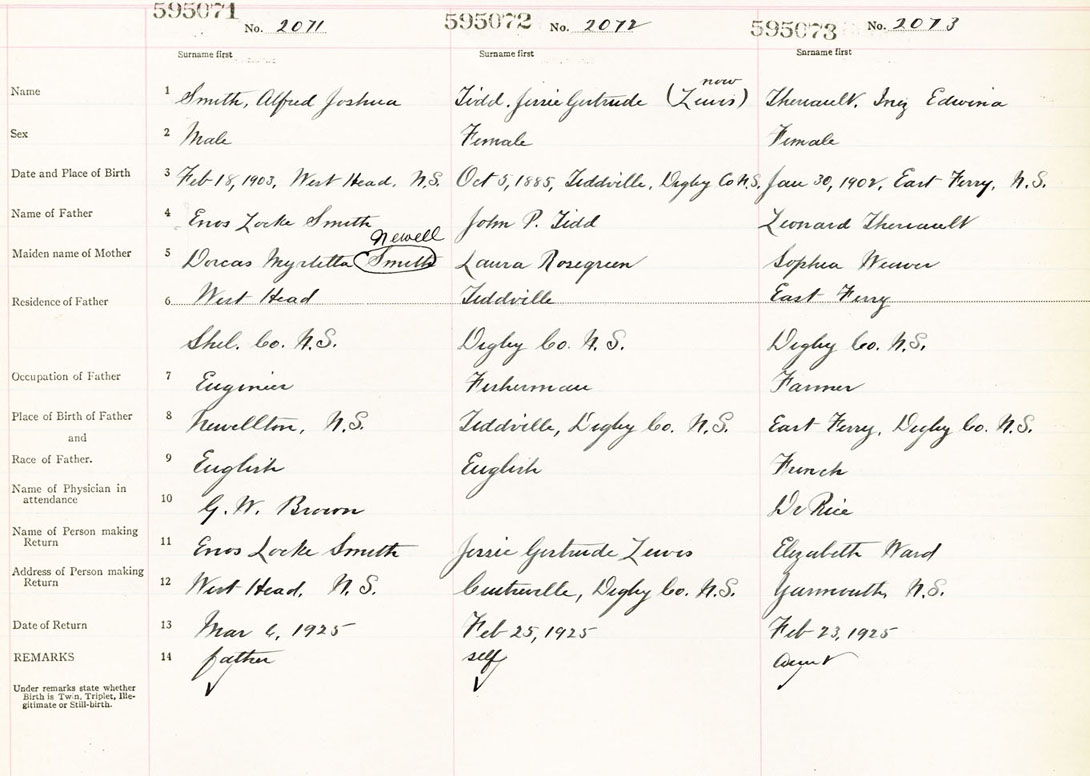 595071 No. 2071 595072 No. 2072 595073 No. 2073
Surname first Surname first Surname first
now
Name 1 Smith, Alfred Joshua Tidd, Jessie Gertrude (Lewis) Theriault, Inez Edwina
Sex 2 Male Female Female
Date and Place of Birth 3 Feb 18, 1903, West Head, N.S. Oct 5, 1885, Tiddville, Digby Co N.S. Jan 30, 1902, East Ferry, N.S.
Name of Father 4 Enos Locke Smith John P. Tidd Leonard Theriault
Newell
Maiden name of Mother 5 Dorcas Myrtetta Smith Laura Rosegreen Sophia Weaver
Residence of Father 6 West Head Tiddville East Ferry
Shel. Co. N.S. Digby Co. N.S. Digby Co. N.S.
Occupation of Father 7 Enginier Fisherman Farmer
Place of Birth of Father 8 Newellton, N.S. Tiddville, Digby Co. N.S. East Ferry, Digby Co. N.S.
and
Race of Father. 9 English English French
Name of Physician in
attendance 10 G. W. Brown Dr Rice
Name of Person making
Return 11 Enos Locke Smith Jessie Gertrude Lewis Elizabeth Ward
Address of Person making
Return 12 West Head, N.S. Centreville, Digby Co. N.S. Yarmouth, N.S.
Date of Return 13 Mar 6, 1925 Feb 25, 1925 Feb 23, 1925
REMARKS 14 father self aunt
Under remarks state whether
Birth is Twin, Triplet, Ille-
gitimate or Still-birth.